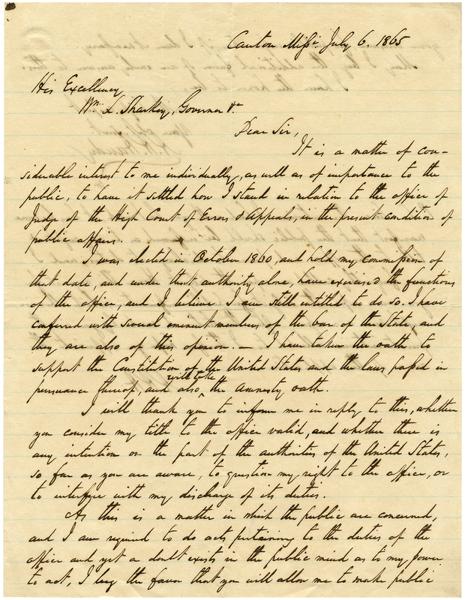 Canton Miss. July 6. 1865
His Excellency
Wm L. Sharkey, Governor &c
Dear Sir,
It is a matter of con-
siderable interest to me individually, as well as of importance to the
public, to have it settled how I stand in relation to the office of
Judge of the High Court of Errors & Appeals, in the present condition of
public affairs.
I was elected in October 1860, and hold my commission of
that date, and under that authority alone, have exercised the functions
of the office, and I believe I am still entitled to do so. I have
conferred with several eminent members of the bar of the State, and
they are also of this opinion. — I have taken the oath to
support the Constitution of the United States and the laws passed in
pursuance thereof, and also the amnesty oath.
I will thank you to inform me in reply to this, whether
you consider my title to the office valid, and whether there is
any intention on the part of the authorities of the United States,
so far as you are aware, to question my right to the office, or
to interfere with my discharge of its duties.
As this is a matter in which the public are concerned,
and I am required to do acts pertaining to the duties of the
office and yet a doubt exists in the public mind as to my power
to act, I beg the favor that you will allow me to make public